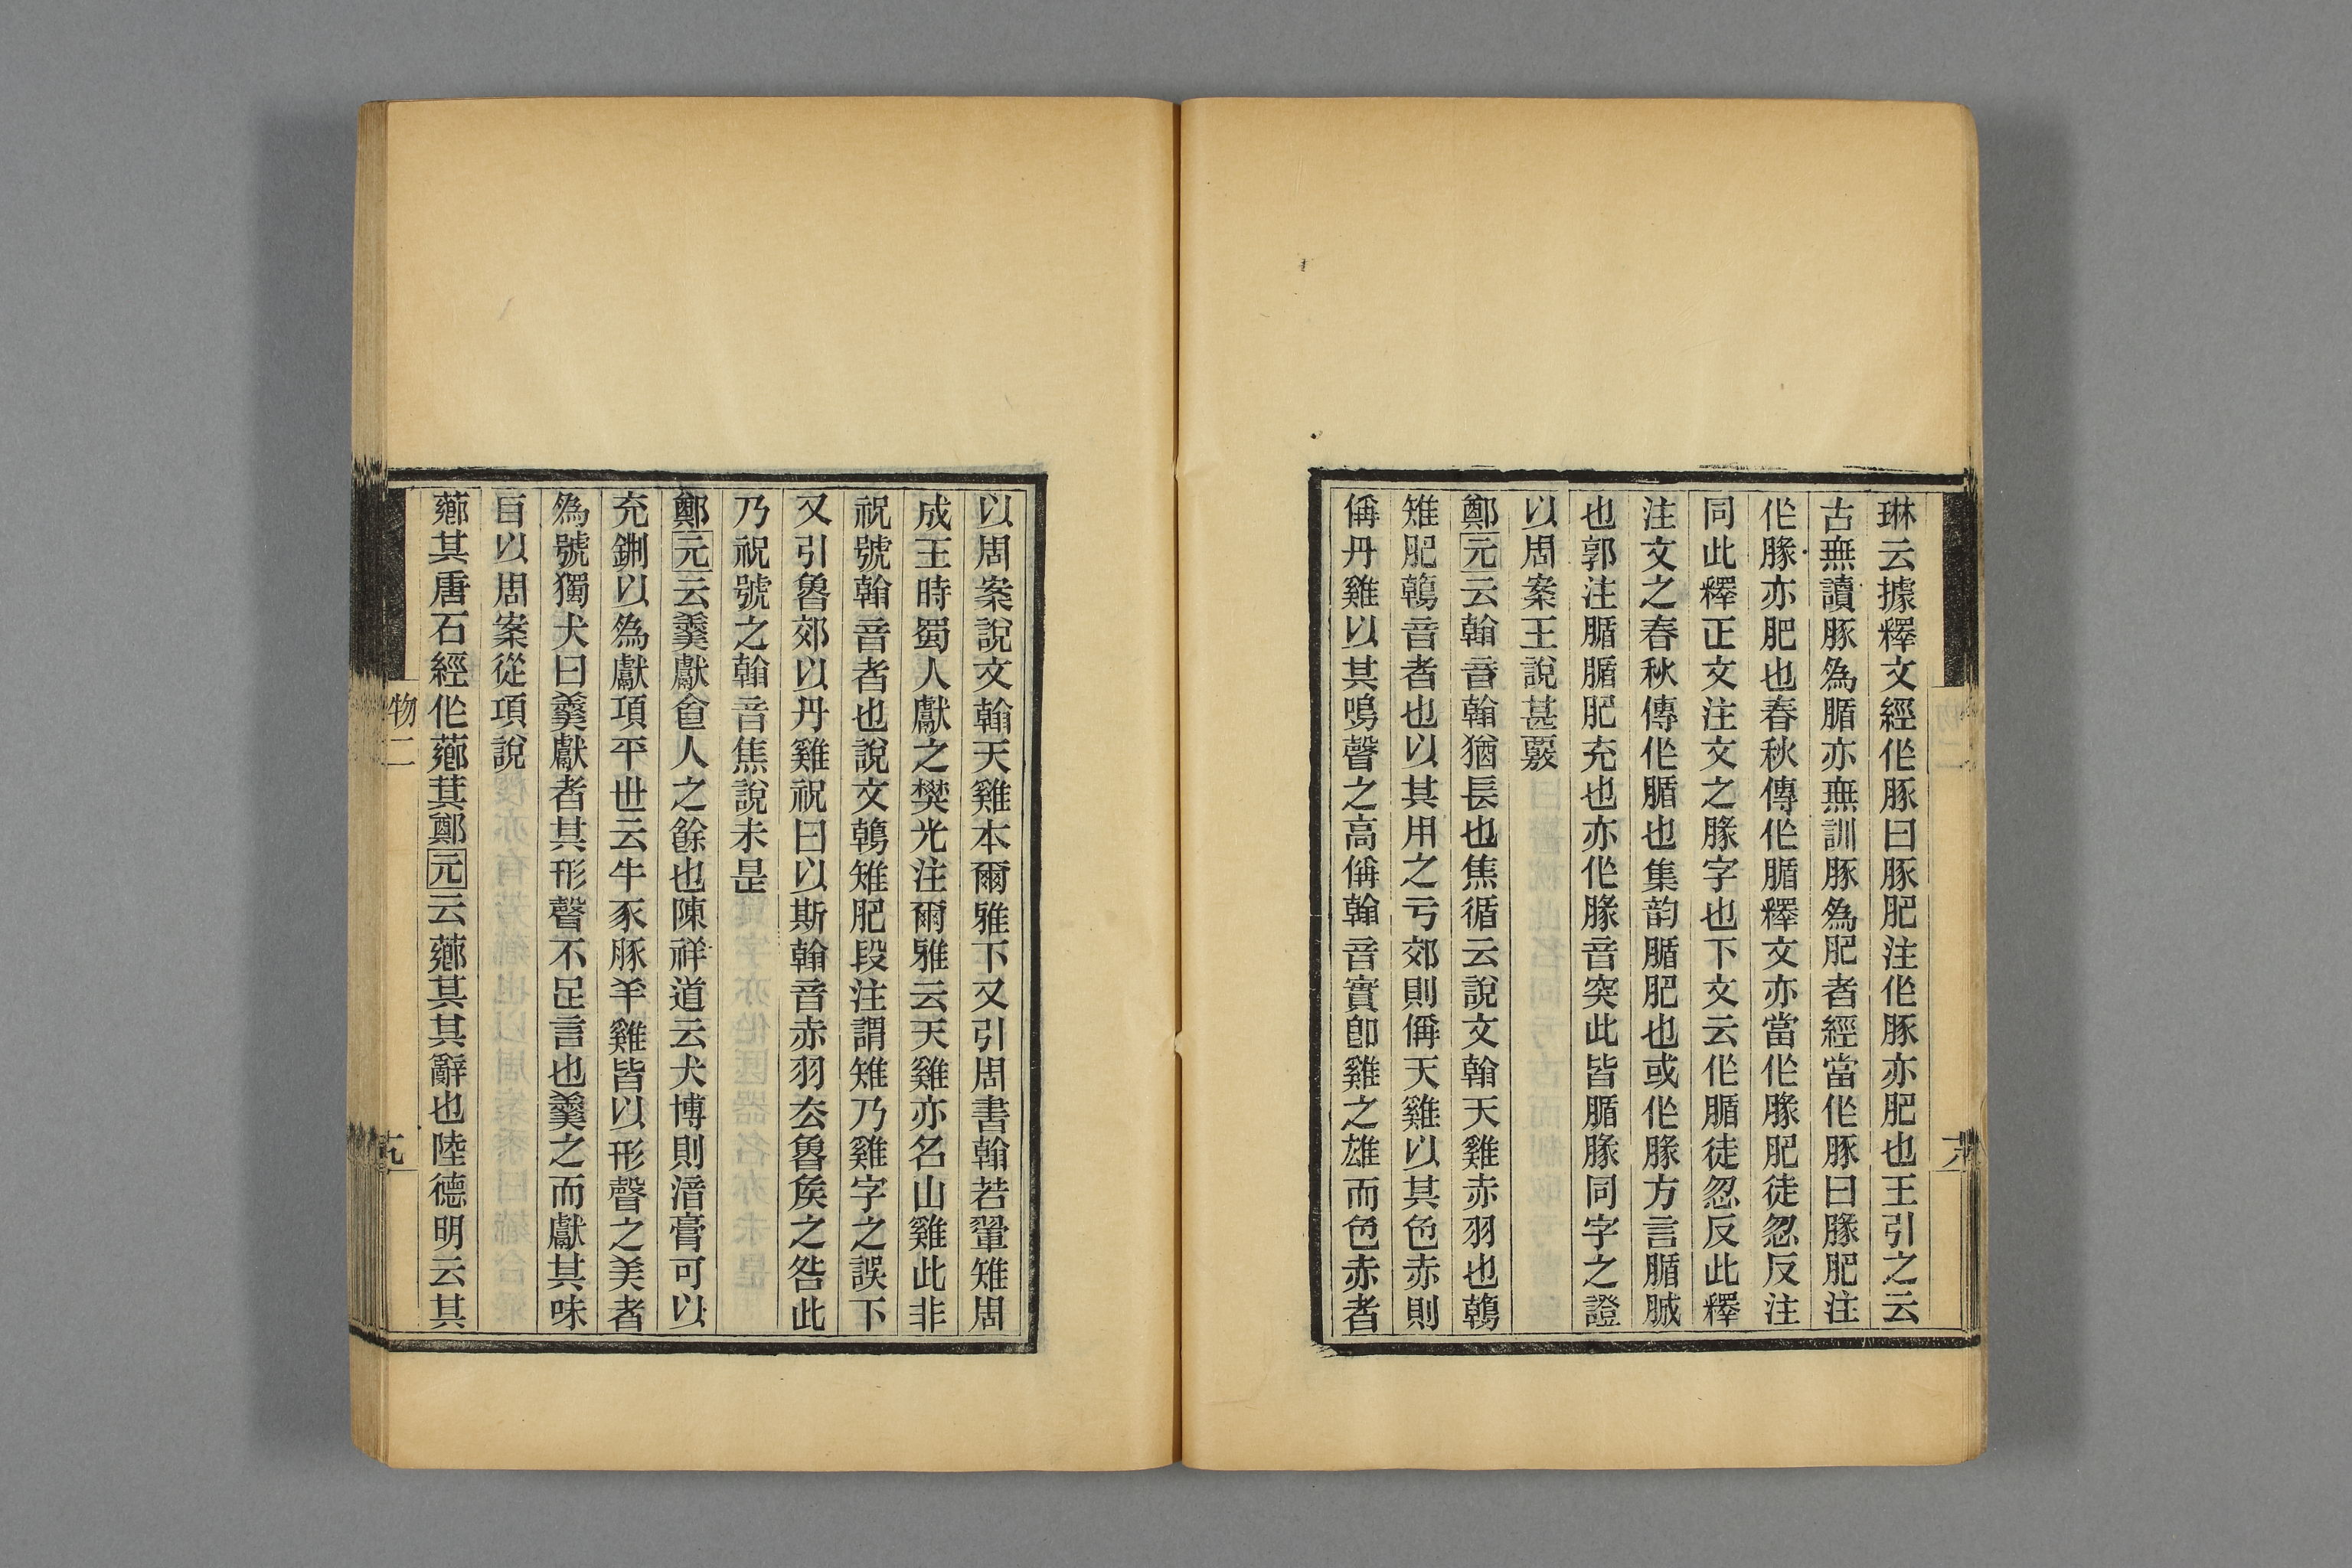 琳云據釋文經作豚曰豚肥注作豚亦肥也王引之云
古無讀豚為腯亦無訓豚為肥者經當作豚曰腞肥注
作腞亦肥也春秋傳作腯釋文亦當作腞肥徒忽反注
同此釋正文注文之腞字也下文云作腯徒忽反此釋
注文之春秋傳作腯也集韵腯肥也或作腞方言腯臹
也郭注腯腯肥充也亦作腞音突此皆腯腞同字之證
以周案王說甚覈
鄭元云翰音翰猶長也焦循云說文翰天雞赤羽也鶾
雉肥鶾音者也以其用之亏郊則偁天雞以其色赤則
偁丹雞以其鳴聲之高偁翰音實卽雞之雄而色赤者
物二
以周案說文翰天雞本爾雅下又引周書翰若翬雉周
成王時蜀人獻之樊光注爾雅云天雞亦名山雞此非
祝號翰音者也說文鶾雉肥段注謂雉乃雞字之誤下
又引魯郊以丹雞祝曰以斯翰音赤羽去魯矦之咎此
乃祝號之翰音焦說未是
鄭元云羹獻食人之餘也陳祥道云犬博則湆膏可以
充鉶以為獻項平世云牛豕豚羊雞皆以形聲之美者
為號獨犬曰羹獻者其形聲不足言也羹之而獻其味
旨以周案從項說
薌其唐石經作薌萁鄭元云薌萁其辭也陸德明云其
物二